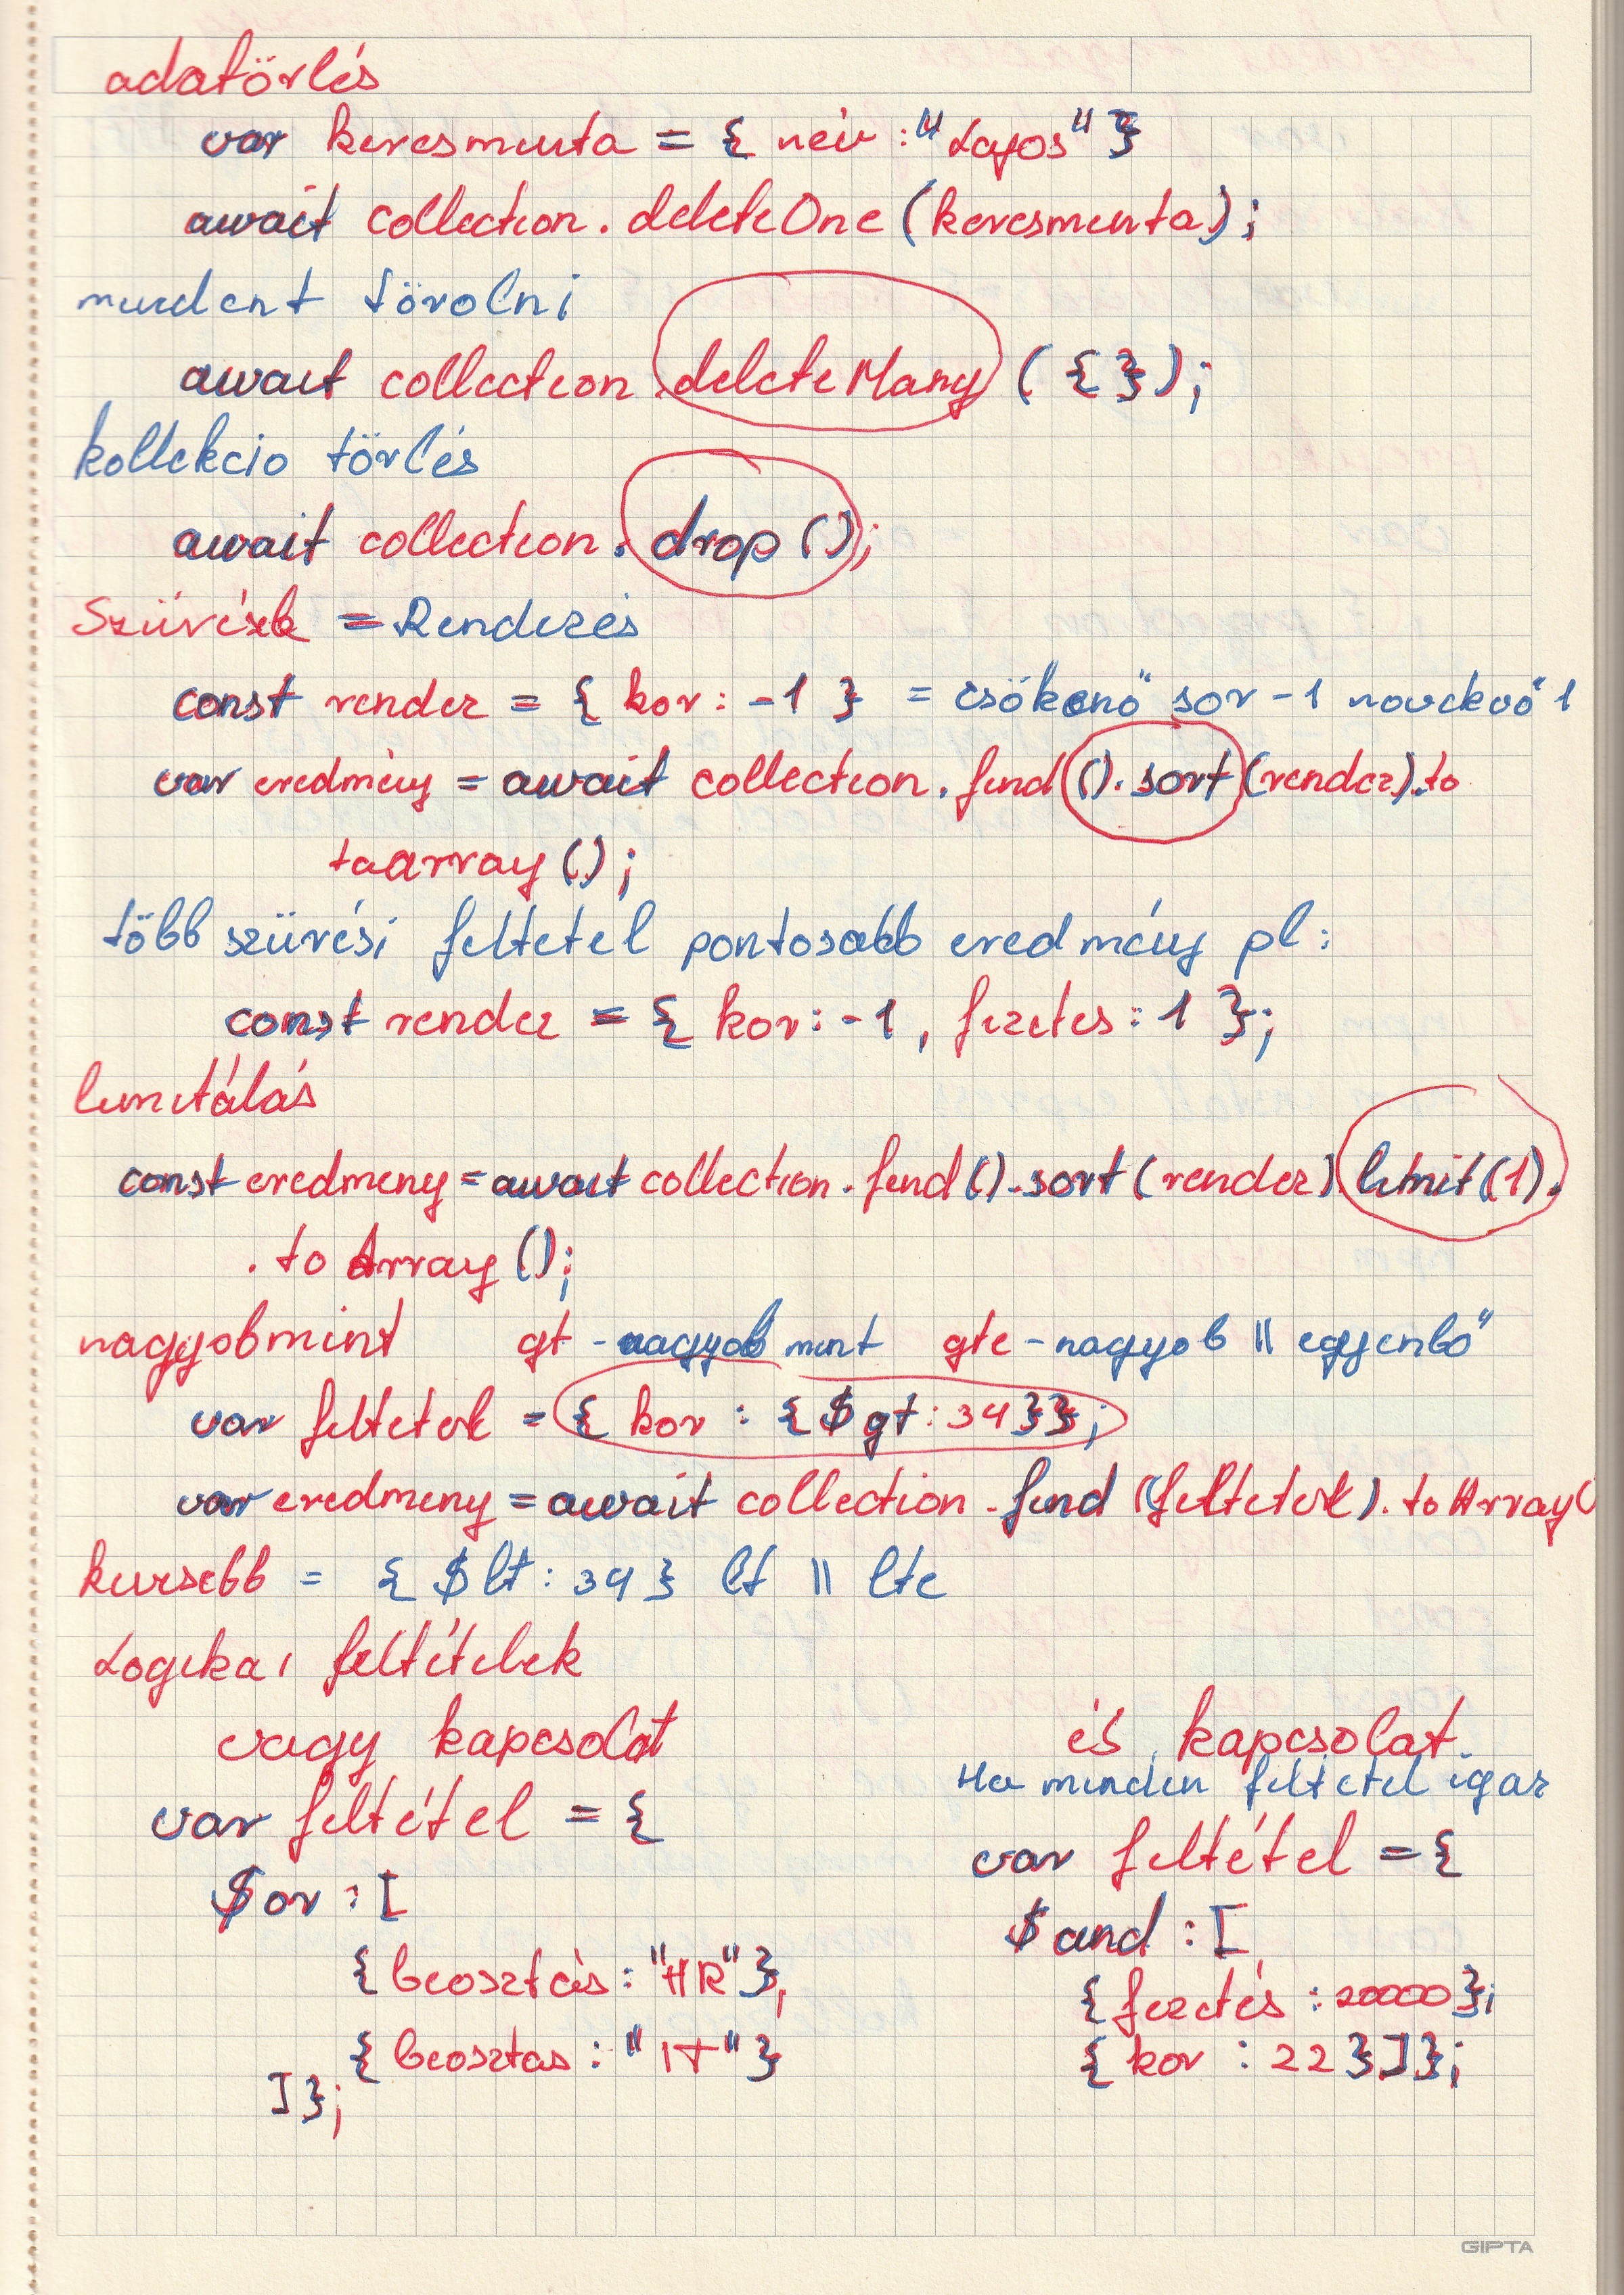 adatörlés
var keresminta = { név : "Lajos" }
await collection.deleteOne (keresminta);
mindent törölni
await collection.deleteMany ( { } );
kollekcio törlés
await collection.drop ();
Szűrések = Rendezés
const rendez = { kor : -1 } = csökenő sor -1 novekvő 1
var eredmény = await collection.find().sort(rendez).to
toarray();
több szürési feltetel pontosabb eredmény pl:
const rendez = { kor : -1 , fizetes : 1 };
limitálás
const eredmeny = await collection.find().sort(rendez).limit(1).
.toArray();
nagyobmint gt - nagyob mint gte - nagyob || egyenlő
var feltetelek = { kor : { $gt : 34 }};
var eredmeny = await collection.find (feltetelek).toArray(
kissebb = { $lt : 34 } lt || lte
Logikai feltételek
vagy kapcsolat
var feltétel = {
$or : [
{ beosztás : "HR" },
{ beosztas : "IT" }
] };
és kapcsolat
Ha minden feltetel igaz
var feltétel = {
$and : [
{ fizetés : 20000 };
{ kor : 22 } ] };
GIPTA